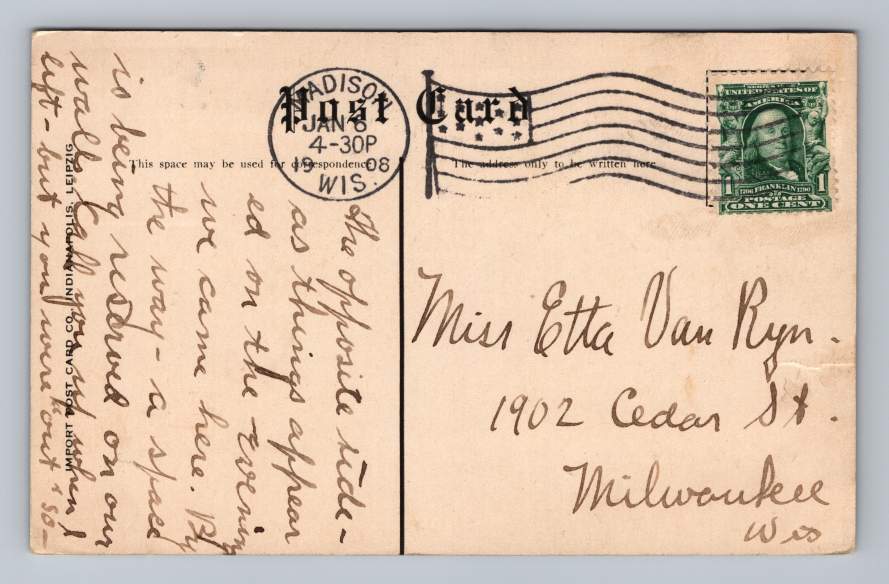 Post Card
This space may be used for correspondence
The address only to be written here
MADISON
JAN 6
4-30P
08
WIS.
SERIES 1902
UNITED STATES OF
AMERICA
1 1706 FRANKLIN 1790 1
POSTAGE
ONE CENT
The opposite side-
as things appear
ed on the evening
we came here. By
the way - a space
is being reserved on our
walls. Call you up when I
left - but you were "out" so -
IMPORT POST CARD CO. INDIANAPOLIS, LEIPZIG
Miss Etta Van Ryn.
1902 Cedar St.
Milwaukee
Wis